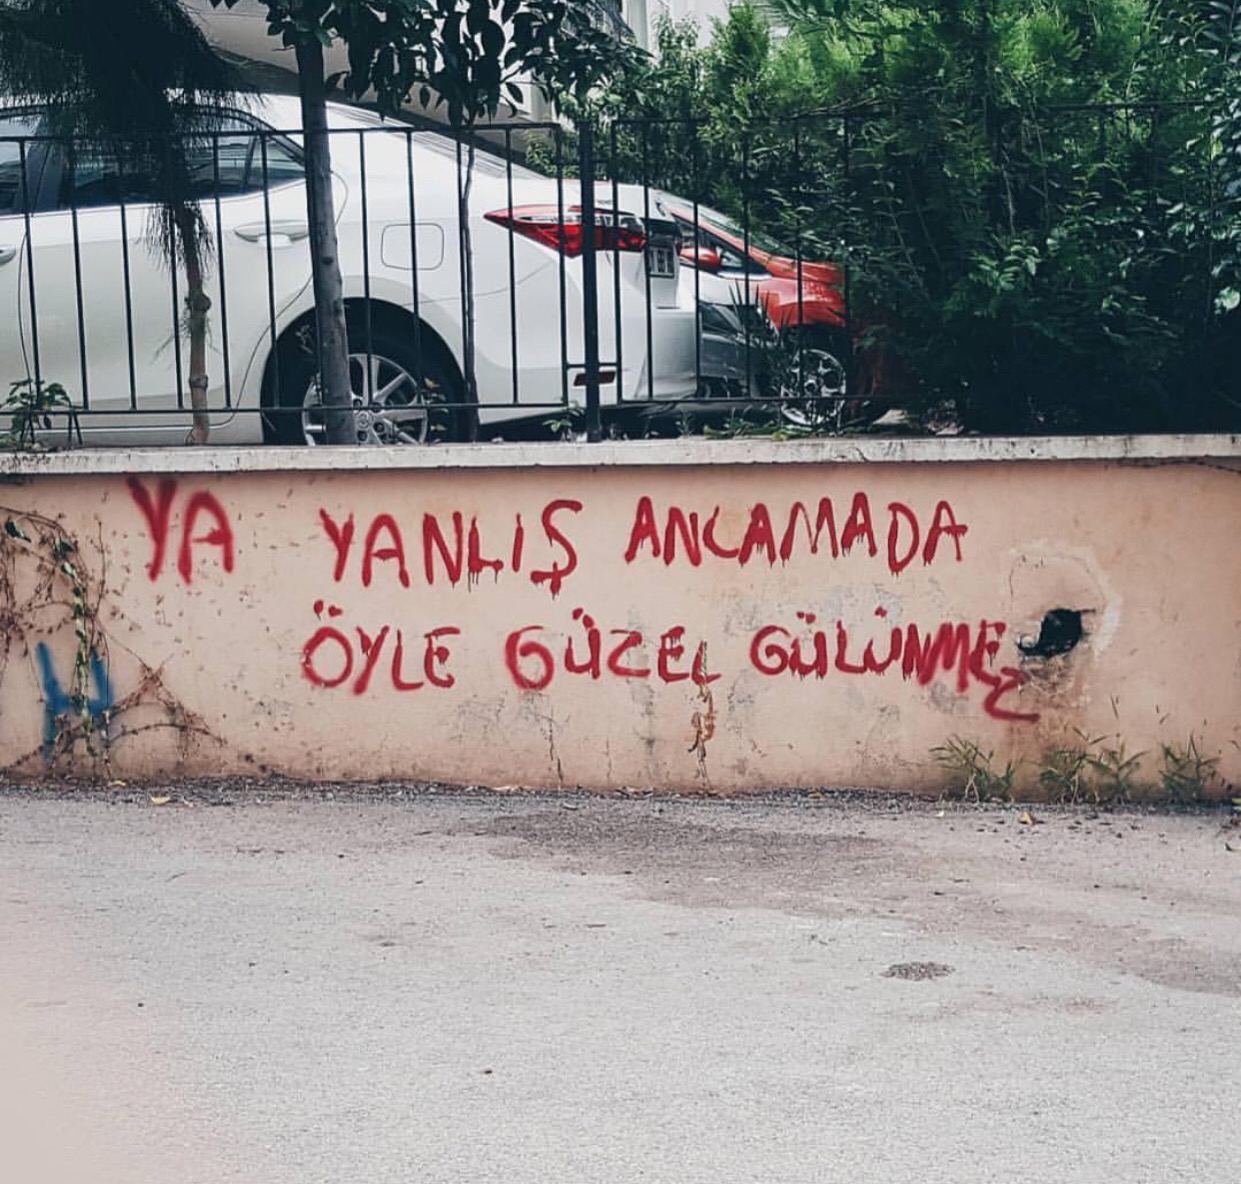 YA YANLIŞ ANLAMADA
ÖYLE GÜZEL GÜLÜNMEZ